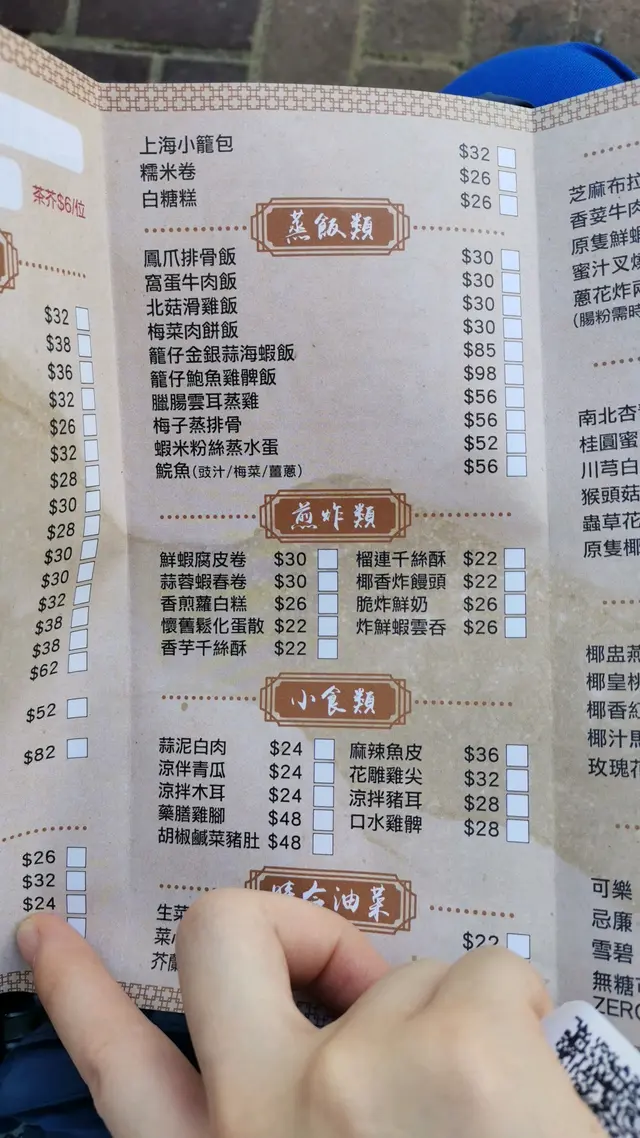 茶芥$6/位
$32
$38
$36
$32
$26
$32
$28
$30
$28
$30
$30
$32
$38
$38
$62
$52
$82
$26
$32
$24
上海小籠包 $32
糯米卷 $26
白糖糕 $26
蒸飯類
鳳爪排骨飯 $30
窩蛋牛肉飯 $30
北菇滑雞飯 $30
梅菜肉餅飯 $30
籠仔金銀蒜海蝦飯 $85
籠仔鮑魚雞髀飯 $98
臘腸雲耳蒸雞 $56
梅子蒸排骨 $56
蝦米粉絲蒸水蛋 $52
鯇魚(豉汁/梅菜/薑蔥) $56
煎炸類
鮮蝦腐皮卷 $30 榴連千絲酥 $22
蒜蓉蝦春卷 $30 椰香炸饅頭 $22
香煎蘿白糕 $26 脆炸鮮奶 $26
懷舊鬆化蛋散 $22 炸鮮蝦雲吞 $26
香芋千絲酥 $22
小食類
蒜泥白肉 $24 麻辣魚皮 $36
涼伴青瓜 $24 花雕雞尖 $32
涼拌木耳 $24 涼拌豬耳 $28
藥膳雞腳 $48 口水雞髀 $28
胡椒鹹菜豬肚 $48
油菜
生菜
$22
芝麻布拉
香荽牛肉
原隻鮮蝦
蜜汁叉燒
蔥花炸兩
(腸粉需時
南北杏
桂圓蜜
川芎白
猴頭菇
蟲草花
原隻椰
椰盅燕
椰皇桃
椰香紅
椰汁馬
玫瑰花
可樂
忌廉
雪碧
無糖可
ZERO